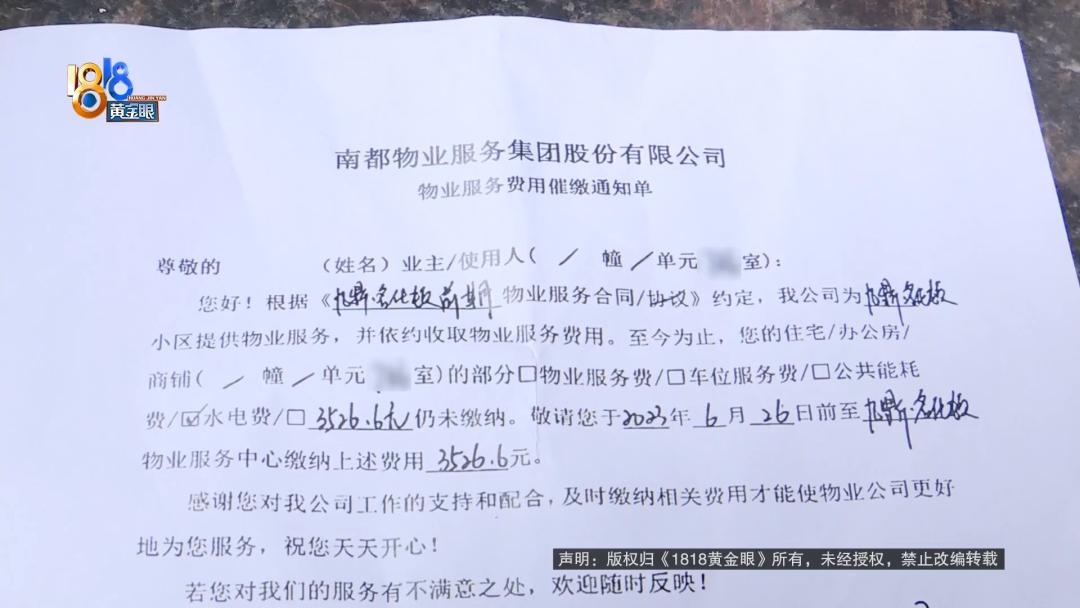 1818
HUANG JIN YAN
黄金眼
南都物业服务集团股份有限公司
物业服务费用催缴通知单
尊敬的 (姓名)业主/使用人( / 幢 / 单元 室):
您好!根据《九鼎·名仕板前期物业服务合同/协议》约定,我公司为九鼎·名仕板
小区提供物业服务,并依约收取物业服务费用。至今为止,您的住宅/办公房/
商铺( / 幢 / 单元 室)的部分□物业服务费/□车位服务费/□公共能耗
费/☑水电费/□ 3526.6元 仍未缴纳。敬请您于2023年 6 月 26 日前至九鼎·名仕板
物业服务中心缴纳上述费用 3526.6 元。
感谢您对我公司工作的支持和配合,及时缴纳相关费用才能使物业公司更好
地为您服务,祝您天天开心!
若您对我们的服务有不满意之处,欢迎随时反映!
声明:版权归《1818黄金眼》所有,未经授权,禁止改编转载